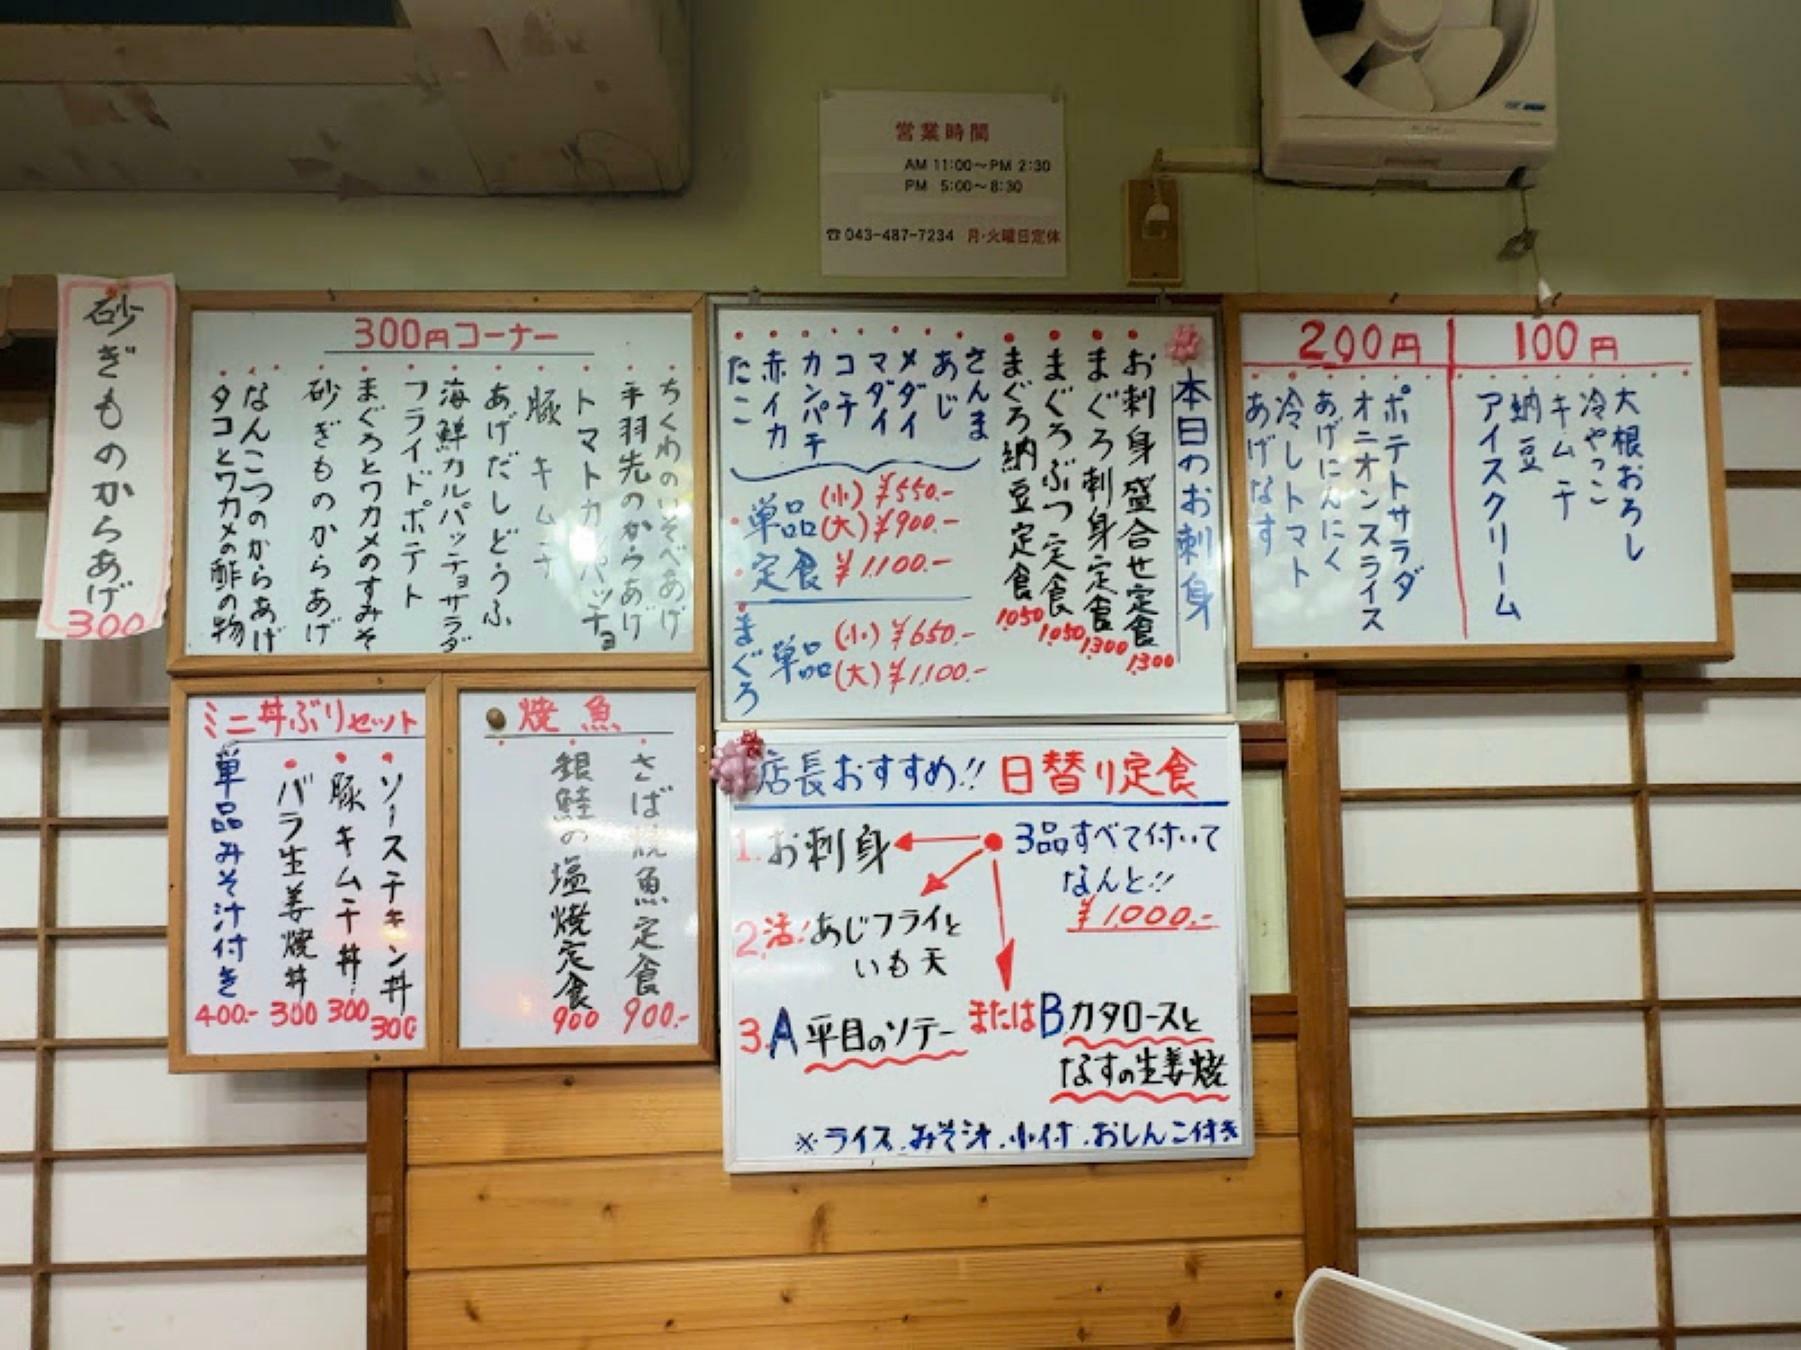 営業時間
AM 11:00～PM 2:30
PM 5:00～8:30
☎043-487-7234 月・火曜日定休
砂ぎものからあげ
300
300円コーナー
ちくわのいそべあげ
手羽先のからあげ
トマトカルパッチョ
豚キムチ
あげだしどうふ
海鮮カルパッチョサラダ
フライドポテト
まぐろとワカメのすみそ
砂ぎものからあげ
なんこつのからあげ
タコとワカメの酢の物
本日のお刺身
お刺身盛合せ定食 1300
まぐろ刺身定食 1300
まぐろぶつ定食 1050
まぐろ納豆定食 1050
さんま
あじ
メダイ
マダイ
コチ
カンパチ
赤イカ
たこ
単品 (小) ¥550.-
(大) ¥900.-
定食 ¥1,100.-
まぐろ 単品 (小) ¥650.-
(大) ¥1,100.-
200円
ポテトサラダ
オニオンスライス
あげにんにく
冷しトマト
あげなす
100円
大根おろし
冷やっこ
キムチ
納豆
アイスクリーム
ミニ丼ぶりセット
ソースチキン丼 300
豚キムチ丼 300
バラ生姜焼丼 300
単品みそ汁付き 400.-
焼魚
さば焼魚定食 900.-
銀鮭の塩焼定食 900
店長おすすめ!! 日替り定食
1.お刺身
3品すべて付いて
なんと!!
¥1,000.-
2.活!あじフライと
いも天
3.A平目のソテー またはBカタロースと
なすの生姜焼
※ライス.みそ汁.小付.おしんこ付き